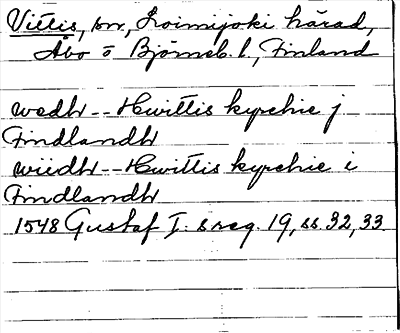 Vittis, sn, Loimijoki härad,
Åbo o Björneb. l., Finland
wedh -- Hwittis kyrchie j
Findlandh
wiidh -- Hwittis kyrchie i
Findlandh
1548 Gustaf I:s reg. 19, ss. 32, 33